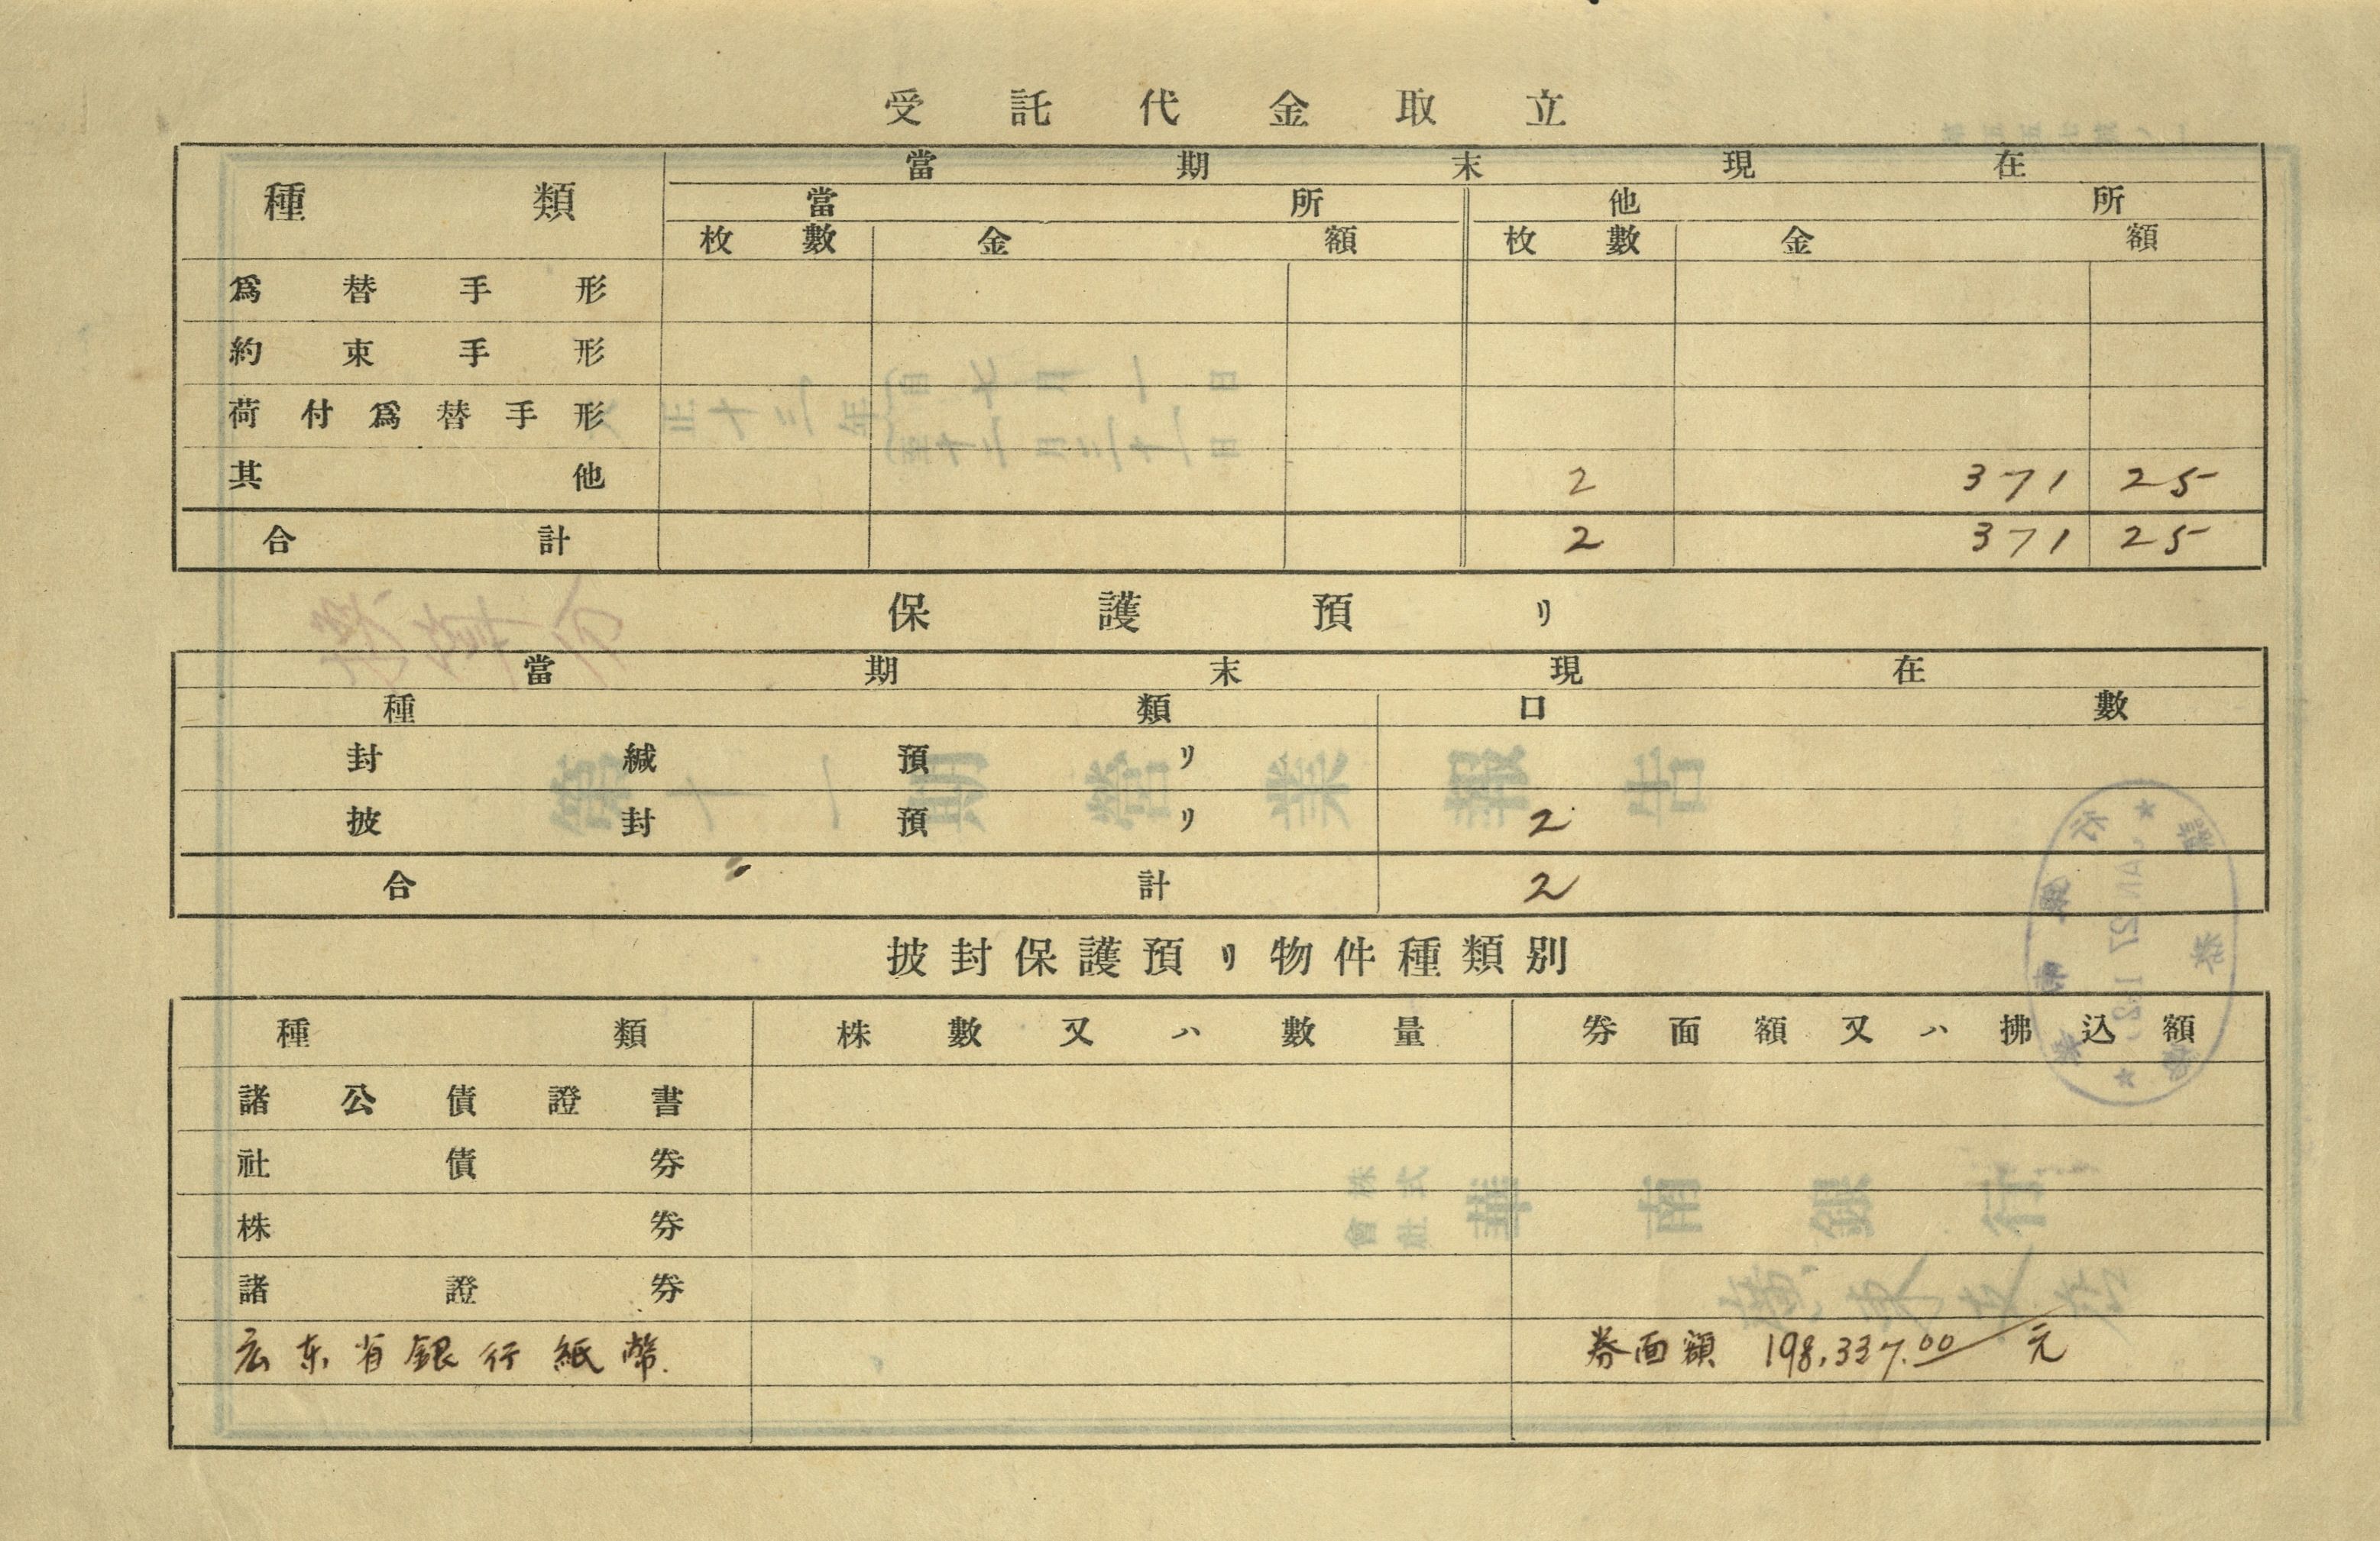 受託代金取立
種類 當期末現在
當所 他所
枚數 金額 枚數 金額
爲替手形
約束手形
荷付爲替手形
其他 2 371 25
合計 2 371 25
保護預リ
當期末現在
種類 口數
封緘預リ
披封預リ 2
合計 2
披封保護預リ物件種類別
種類 株數又ハ數量 券面額又ハ拂込額
諸公債證書
社債券
株券
諸證券
広东省銀行紙幣. 券面額 198,337.00 元